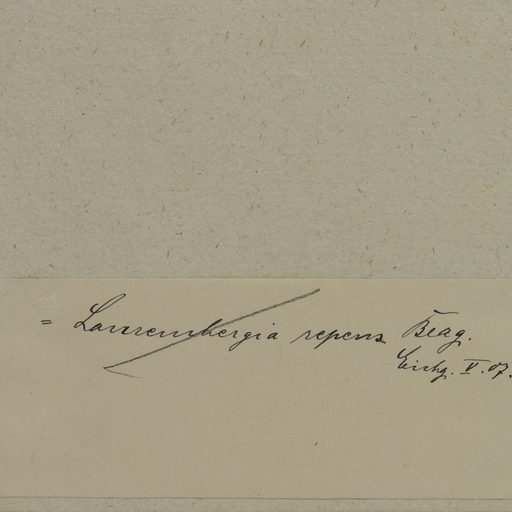 = Laurembergia repens Berg.
Eichg. V. 07.